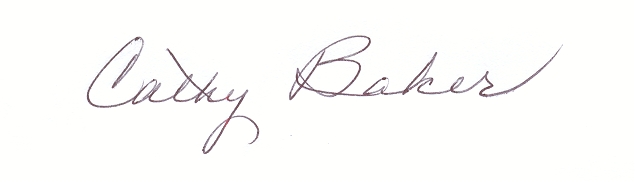 Cathy Baker